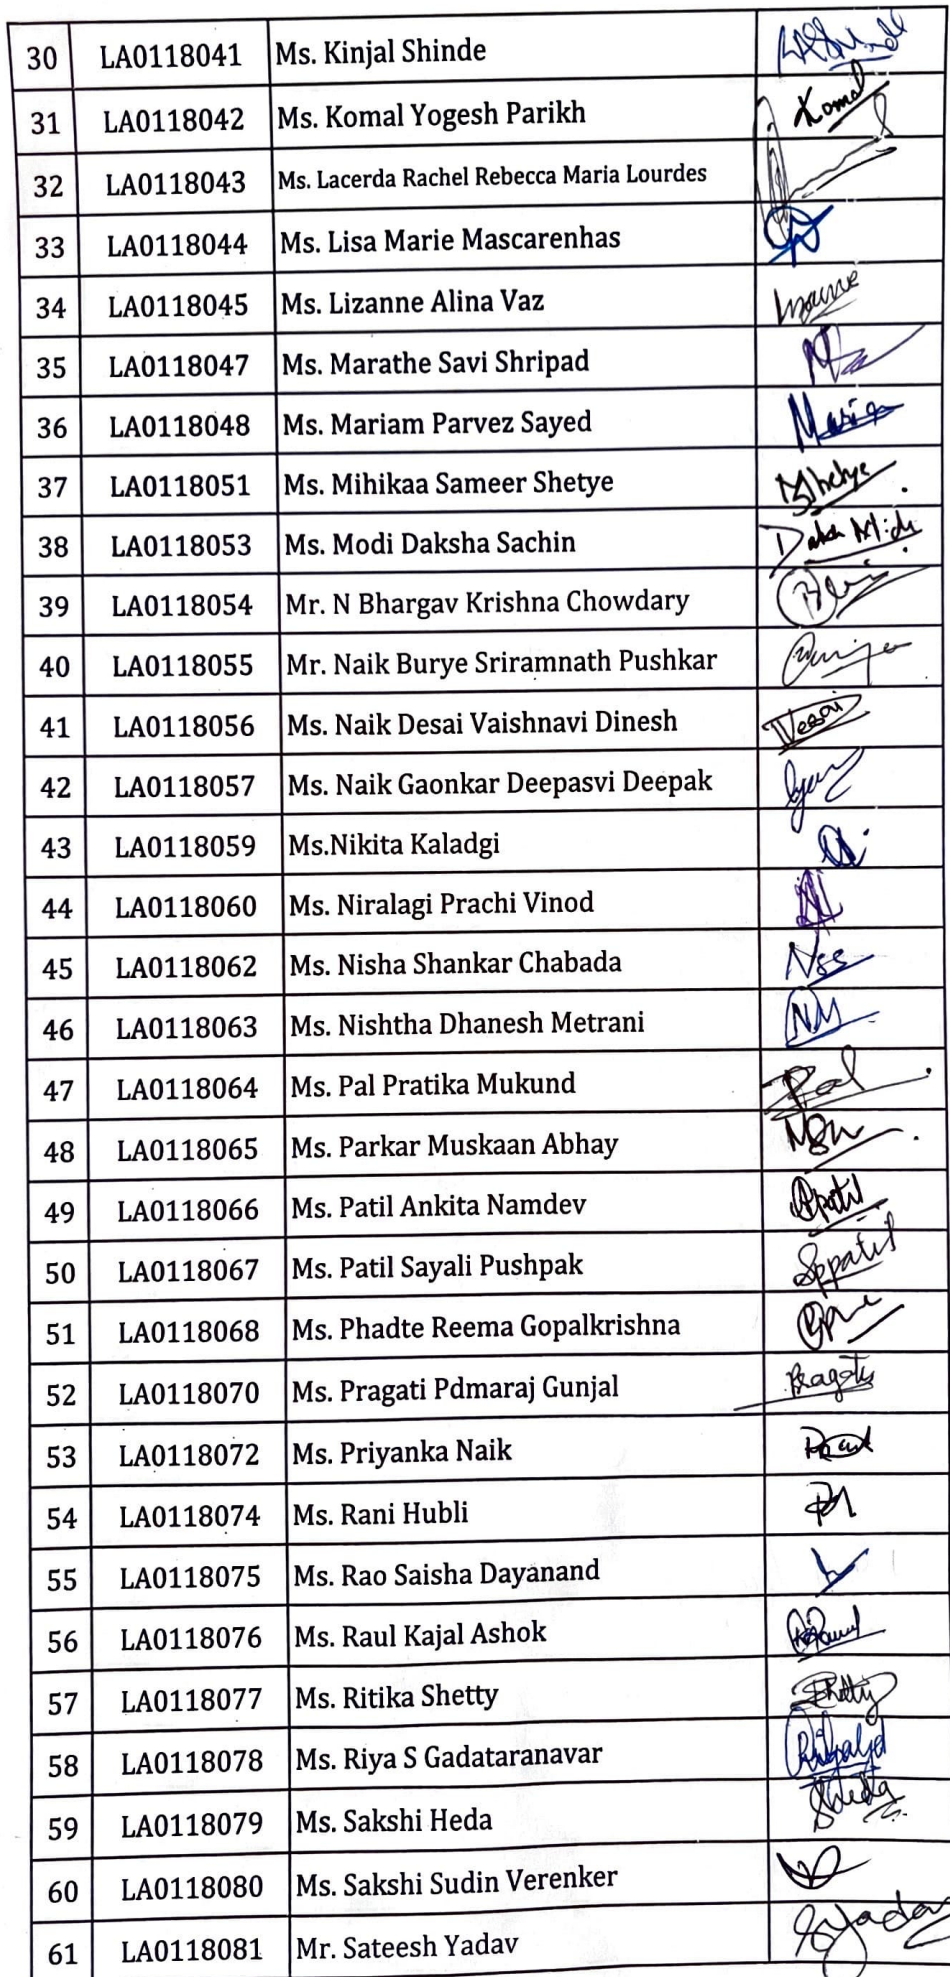 30 LA0118041 Ms. Kinjal Shinde
31 LA0118042 Ms. Komal Yogesh Parikh Komal
32 LA0118043 Ms. Lacerda Rachel Rebecca Maria Lourdes
33 LA0118044 Ms. Lisa Marie Mascarenhas
34 LA0118045 Ms. Lizanne Alina Vaz
35 LA0118047 Ms. Marathe Savi Shripad
36 LA0118048 Ms. Mariam Parvez Sayed
37 LA0118051 Ms. Mihikaa Sameer Shetye
38 LA0118053 Ms. Modi Daksha Sachin
39 LA0118054 Mr. N Bhargav Krishna Chowdary
40 LA0118055 Mr. Naik Burye Sriramnath Pushkar
41 LA0118056 Ms. Naik Desai Vaishnavi Dinesh
42 LA0118057 Ms. Naik Gaonkar Deepasvi Deepak
43 LA0118059 Ms.Nikita Kaladgi
44 LA0118060 Ms. Niralagi Prachi Vinod
45 LA0118062 Ms. Nisha Shankar Chabada Nss
46 LA0118063 Ms. Nishtha Dhanesh Metrani NM
47 LA0118064 Ms. Pal Pratika Mukund Pal
48 LA0118065 Ms. Parkar Muskaan Abhay
49 LA0118066 Ms. Patil Ankita Namdev
50 LA0118067 Ms. Patil Sayali Pushpak Sppatil
51 LA0118068 Ms. Phadte Reema Gopalkrishna
52 LA0118070 Ms. Pragati Pdmaraj Gunjal
53 LA0118072 Ms. Priyanka Naik
54 LA0118074 Ms. Rani Hubli
55 LA0118075 Ms. Rao Saisha Dayanand
56 LA0118076 Ms. Raul Kajal Ashok
57 LA0118077 Ms. Ritika Shetty Shetty
58 LA0118078 Ms. Riya S Gadataranavar
59 LA0118079 Ms. Sakshi Heda
60 LA0118080 Ms. Sakshi Sudin Verenker
61 LA0118081 Mr. Sateesh Yadav